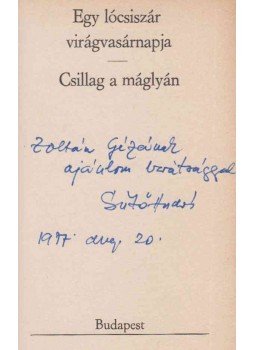 Egy lócsiszár
virágvasárnapja
Csillag a máglyán
Zoltán Gézának
ajánlom barátsággal
Sütő András
1977 aug. 20.
Budapest